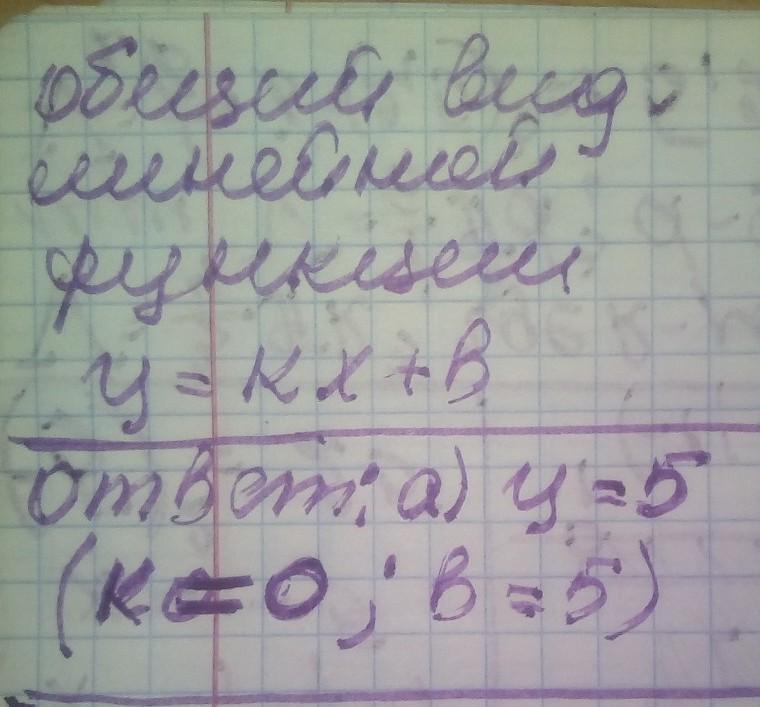 общий вид:
линейной
функции
у = кх + в
ответ: а) у = 5
(к = 0; в = 5)